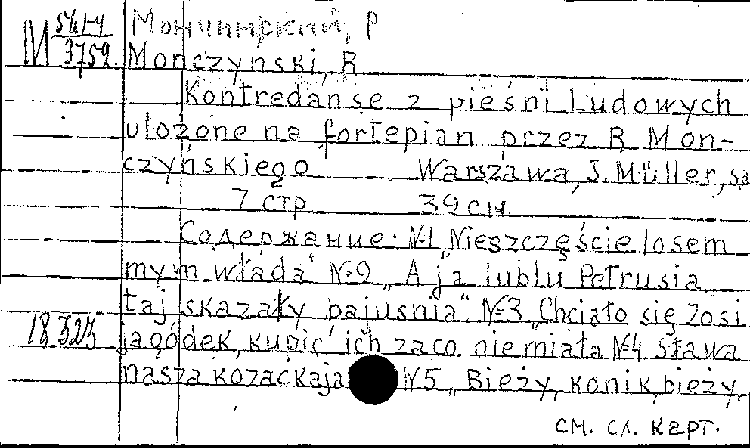 М 54/14 Мончинский, Р
3759 Monczyński, R
Kontredanse z pieśni ludowych
ułożone na fortepian przez R Mon-
czyńskiego Warszawa, J. Müller, sa
7 стр 39 см.
Содержание: №1 „Nieszczęście losem
mym włada" №2 „A ja lublu Petrusia
taj skazaty bajusnia" №3 „Chciało się Zosi
18323 jagódek, kupić ich za co nie miała №4 Sława
nasza kozaćkaja №5 „Bieży, konik, bieży,
см. сл. карт.